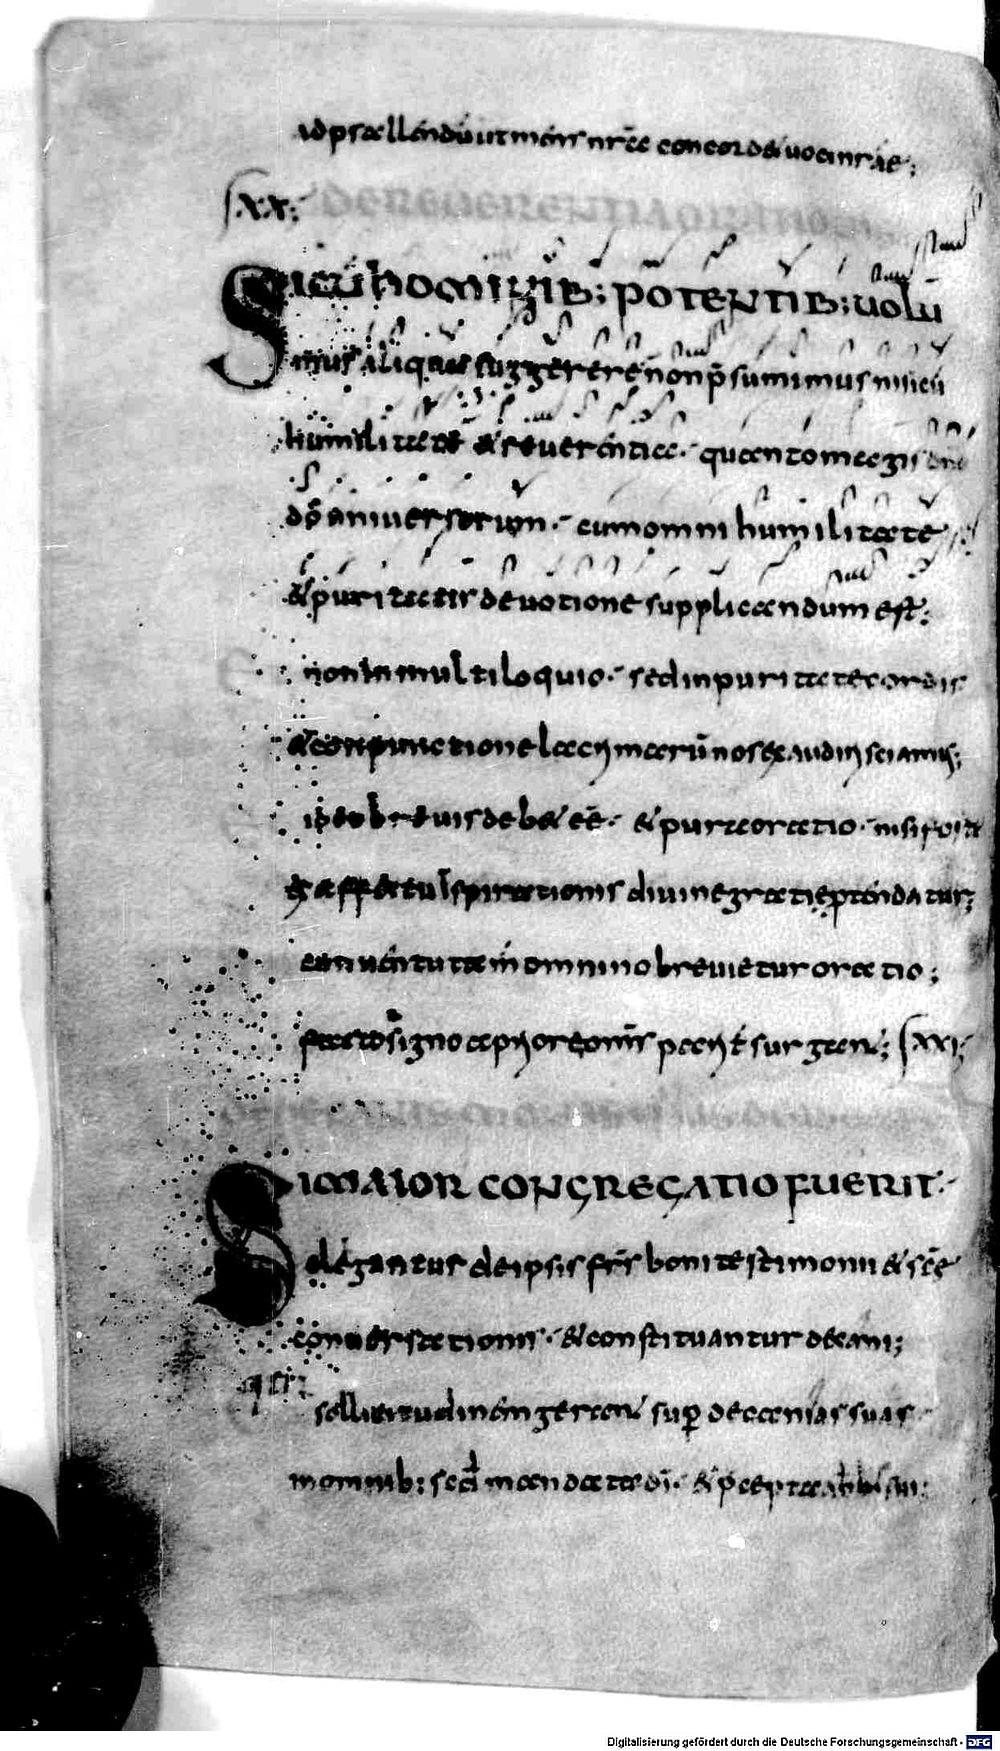 ad psallendū ut mens nr̄a concordet voci nr̄ae;
XX; DE REVERENTIA ORATIONIS
Sicū hominib; potentib; volu
mus aliqua suggerere non p̄sumimus nisi cū
humilitate et reverentia· quanto magis dn̄o
dō universorum· cum omni humilitate
et puritatis devotione supplicandum est;
non in multiloquio· sed in puritate cordis
et conpunctione lacrimarū nos exaudiri sciamus;
ideo brevis debet eē· et pura oratio· nisi forte
ex affectu inspirationis divine gratie ptendatur;
conventu tam̄ omnino brevietur oratio;
facto signo a priore om̄s parit̄ surgant; XXI;
Si maior congregatio fuerit·
elegantur de ipsis fr̄s boni testimonii et sc̄e
conversationis· et constituantur decani;
qui
sollicitudinem gerant sup decanias suas
in omnib; scd̄ mandata dī· et p̄cepta abbatis sui;
Digitalisierung gefördert durch die Deutsche Forschungsgemeinschaft - DFG